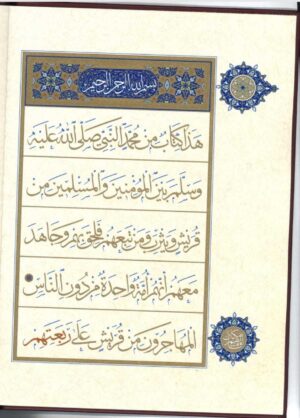 بسم الله الرحمن الرحيم
هَذَا كِتَابٌ مِن مُحَمَّدٍ النَّبِيِّ صَلَّى اللهُ عَلَيْهِ
وَسَلَّمَ بَيْنَ المُؤْمِنِينَ وَالمُسْلِمِينَ مِن
قُرَيْشٍ وَيَثْرِبَ وَمَنْ تَبِعَهُمْ فَلَحِقَ بِهِمْ وَجَاهَدَ
مَعَهُمْ أَنَّهُمْ أُمَّةٌ وَاحِدَةٌ مِن دُونِ النَّاسِ
المُهَاجِرُونَ مِن قُرَيْشٍ عَلَى رَبْعَتِهِمْ